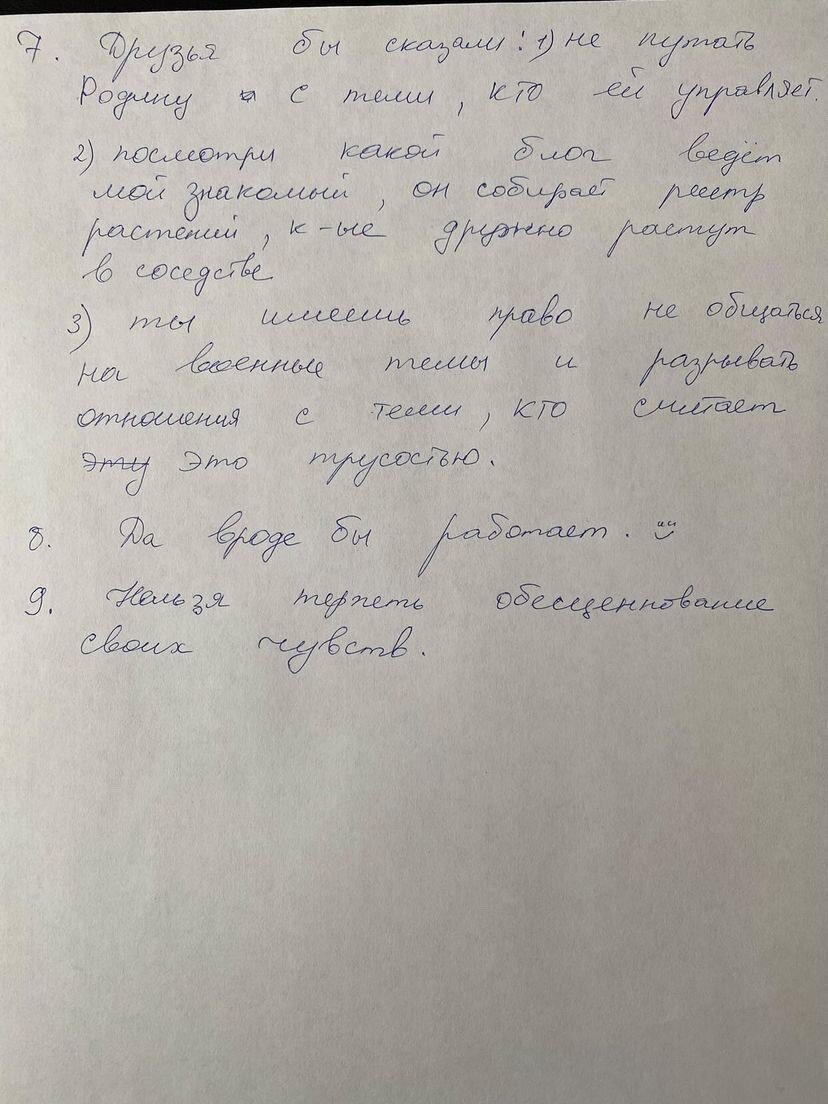 7. Друзья бы сказали: 1) не путать
Родину с теми, кто ей управляет.
2) посмотри какой блог ведёт
мой знакомый, он собирает реестр
растений, к-ые дружно растут
в соседстве
3) ты имеешь право не общаться
на военные темы и разрывать
отношения с теми, кто считает
эту это трусостью.
8. Да вроде бы работает.
9. Нельзя терпеть обесценнование
своих чувств.